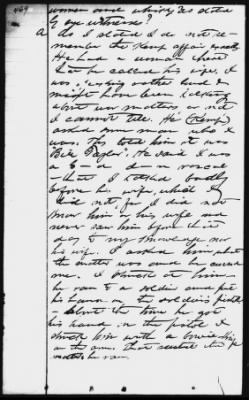 woman and whisky as stated
by eye witnesses?
A. As I stated I do not re-
member the Kemp affair exactly
He had a woman there
that he called his wife. I
was
might have been talking
about war matters or not
I cannot tell. He (Kemp)
asked some man who I
was. He told him it was
Bill Taylor. He said I was
a G— d— d— n rascal
— that I talked badly
before his wife, which I
did not, for I did not
know him or his wife and
never saw him before that
day to my knowledge nor
his wife. I asked him what
the matter was and he cursed
me. I struck at him —
he ran to a soldier and put
his hand on the soldier's pistol
— about the time he got
his hand on the pistol I
struck him with a
on the arm. That
he ran.